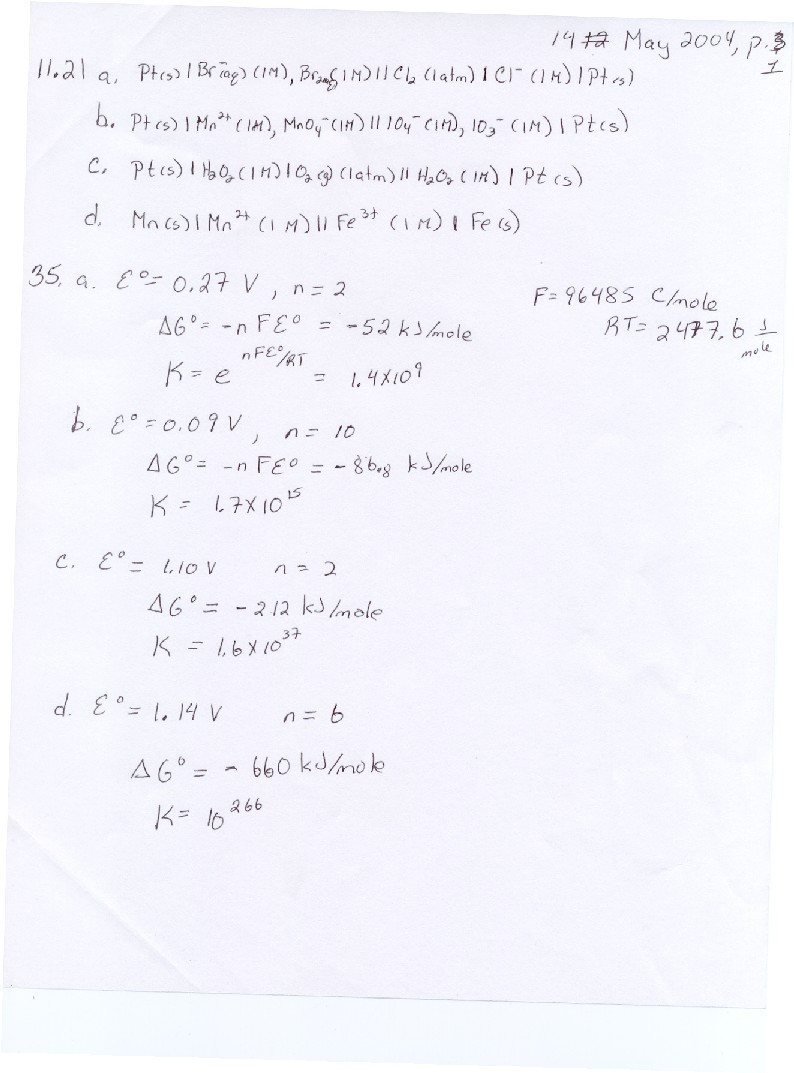 14 12 May 2004, p. 3
1
11.21 a. Pt(s) | Br⁻(aq) (1M), Br₂(aq) (1M) || Cl₂ (1atm) | Cl⁻ (1M) | Pt(s)
b. Pt(s) | Mn²⁺ (1M), MnO₄⁻ (1M) || IO₄⁻ (1M), IO₃⁻ (1M) | Pt(s)
c. Pt(s) | H₂O₂ (1M) | O₂(g) (1atm) || H₂O₂ (1M) | Pt(s)
d. Mn(s) | Mn²⁺ (1M) || Fe³⁺ (1M) | Fe(s)
35. a. ℰ° = 0.27 V, n = 2
F = 96485 C/mole
ΔG° = -nFℰ° = -52 kJ/mole
RT = 2477.6 J/mole
K = e^(nFℰ°/RT) = 1.4×10⁹
b. ℰ° = 0.09 V, n = 10
ΔG° = -nFℰ° = -86.8 kJ/mole
K = 1.7×10¹⁵
c. ℰ° = 1.10 V n = 2
ΔG° = -212 kJ/mole
K = 1.6×10³⁷
d. ℰ° = 1.14 V n = 6
ΔG° = -660 kJ/mole
K = 10²⁶⁶